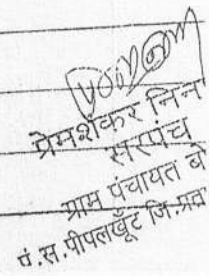 प्रेमशंकर निन
सरपंच
ग्राम पंचायत बो
पं.स.पीपलखूँट जि.प्रता